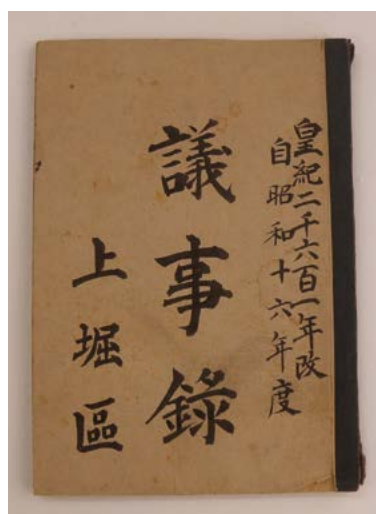 皇紀二千六百一年改
自昭和十六年度
議事錄
上堀區